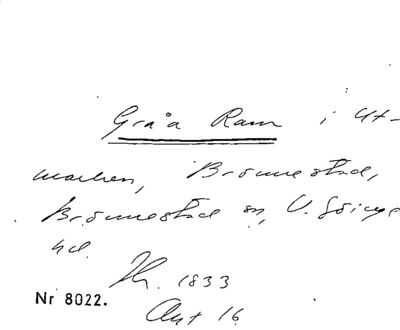 Gråa Ram i Ut-
marken, Brönnestad,
Brönnestad sn, V. Göinge
hd.
Th. 1833
Nr 8022.
Ant 16